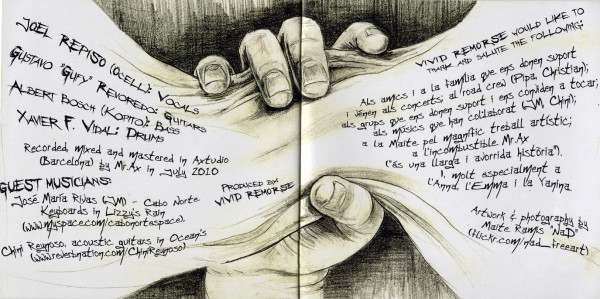 Joel Repiso (Ocell): Vocals
Gustavo "Gufy" Revoredo: Guitars
Albert Bosch (Kopito): Bass
Xavier F. Vidal: Drums
Recorded mixed and mastered in Axtudio
(Barcelona) by Mr.Ax in July 2010
Guest musicians:
José María Rivas (JM) - Cabo Norte
Keyboards in Lizzy's Rain
(www.myspace.com/cabonortespace).
Chini Reynoso, acoustic guitars in Ocean's
(www.reverbnation.com/ChiniReynoso)
Produced by
Vivid Remorse
Vivid Remorse would like to
thank and salute the following:
Als amics i a la família que ens donen suport
i vénen als concerts; al road crew (Pipa, Christian);
als grups que ens donen suport i ens conviden a tocar;
als músics que han col·laborat (JM, Chini);
a la Maite pel magnífic treball artístic;
a l'incombustible Mr.Ax
("és una llarga i avorrida història").
I, molt especialment a
l'Anna, l'Emma i la Yanina.
Artwork & photography by
Maite Ramis "NaD"
(flickr.com/nad_freeart)